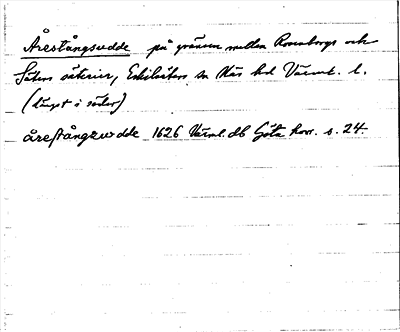 Årestångsudde på gränsen mellan Rosenborgs och
Sätens säterier, Eskilsäters sn Näs hd Värml. l.
(längst i söder)
årestångzudde 1626 Värml. db Göta hovr. s. 24